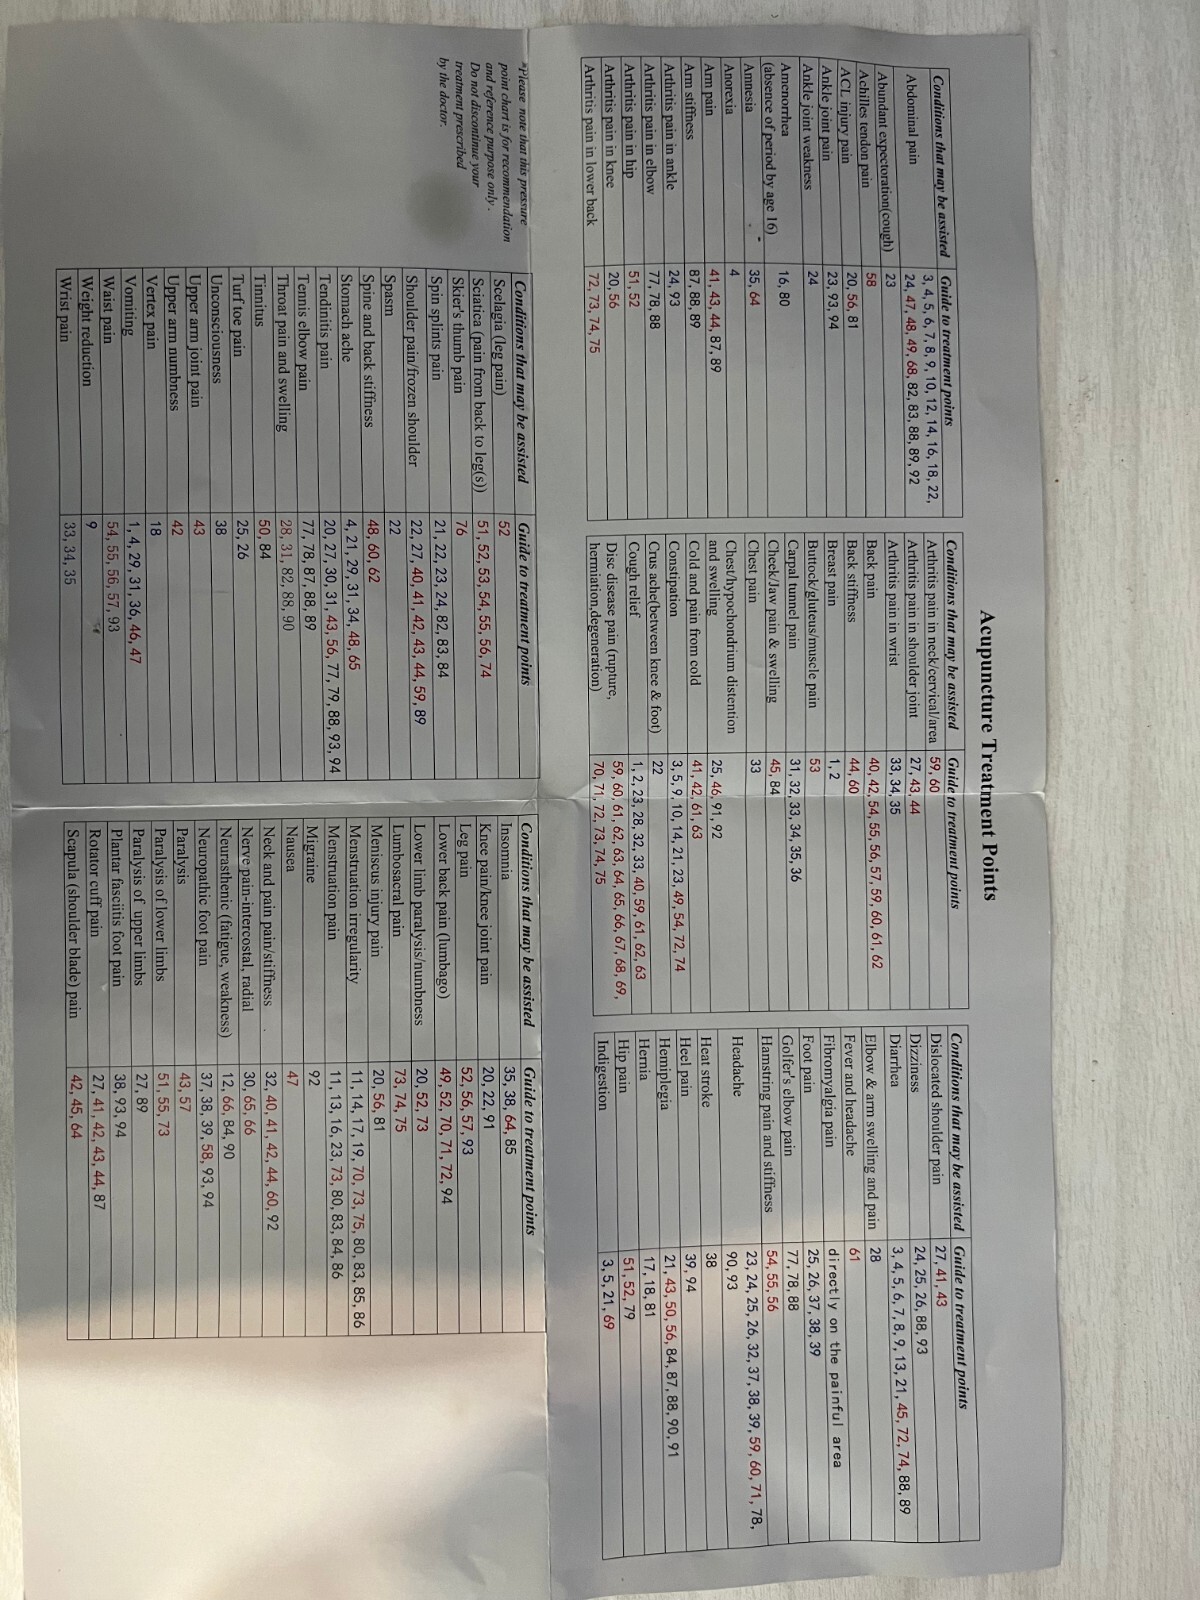 Acupuncture Treatment Points
Conditions that may be assisted Guide to treatment points
Abdominal pain 3, 4, 5, 6, 7, 8, 9, 10, 12, 14, 16, 18, 22,
24, 47, 48, 49, 68, 82, 83, 88, 89, 92
Abundant expectoration(cough) 23
Achilles tendon pain 58
ACL injury pain 20, 56, 81
Ankle joint pain 23, 93, 94
Ankle joint weakness 24
Amenorrhea
(absence of period by age 16) 16, 80
Amnesia 35, 64
Anorexia 4
Arm pain 41, 43, 44, 87, 89
Arm stiffness 87, 88, 89
Arthritis pain in ankle 24, 93
Arthritis pain in elbow 77, 78, 88
Arthritis pain in hip 51, 52
Arthritis pain in knee 20, 56
Arthritis pain in lower back 72, 73, 74, 75
Conditions that may be assisted Guide to treatment points
Arthritis pain in neck/cervical/area 59, 60
Arthritis pain in shoulder joint 27, 43, 44
Arthritis pain in wrist 33, 34, 35
Back pain 40, 42, 54, 55, 56, 57, 59, 60, 61, 62
Back stiffness 44, 60
Breast pain 1, 2
Buttock/gluteus/muscle pain 53
Carpal tunnel pain 31, 32, 33, 34, 35, 36
Cheek/Jaw pain & swelling 45, 84
Chest pain 33
Chest/hypochondrium distention
and swelling 25, 46, 91, 92
Cold and pain from cold 41, 42, 61, 63
Constipation 3, 5, 9, 10, 14, 21, 23, 49, 54, 72, 74
Crus ache(between knee & foot) 22
Cough relief 1, 2, 23, 28, 32, 33, 40, 59, 61, 62, 63
Disc disease pain (rupture, 59, 60, 61, 62, 63, 64, 65, 66, 67, 68, 69,
herniation,degeneration) 70, 71, 72, 73, 74, 75
Conditions that may be assisted Guide to treatment points
Dislocated shoulder pain 27, 41, 43
Dizziness 24, 25, 26, 88, 93
Diarrhea 3, 4, 5, 6, 7, 8, 9, 13, 21, 45, 72, 74, 88, 89
Elbow & arm swelling and pain 28
Fever and headache 61
Fibromyalgia pain directly on the painful area
Foot pain 25, 26, 37, 38, 39
Golfer's elbow pain 77, 78, 88
Hamstring pain and stiffness 54, 55, 56
Headache 23, 24, 25, 26, 32, 37, 38, 39, 59, 60, 71, 78,
90, 93
Heat stroke 38
Heel pain 39, 94
Hemiplegia 21, 43, 50, 56, 84, 87, 88, 90, 91
Hernia 17, 18, 81
Hip pain 51, 52, 79
Indigestion 3, 5, 21, 69
*Please note that this pressure
point chart is for recommendation
and reference purpose only.
Do not discontinue your
treatment prescribed
by the doctor.
Conditions that may be assisted Guide to treatment points
Scelagia (leg pain) 52
Sciatica (pain from back to leg(s)) 51, 52, 53, 54, 55, 56, 74
Skier's thumb pain 76
Spin splints pain 21, 22, 23, 24, 82, 83, 84
Shoulder pain/frozen shoulder 22, 27, 40, 41, 42, 43, 44, 59, 89
Spasm 22
Spine and back stiffness 48, 60, 62
Stomach ache 4, 21, 29, 31, 34, 48, 65
Tendinitis pain 20, 27, 30, 31, 43, 56, 77, 79, 88, 93, 94
Tennis elbow pain 77, 78, 87, 88, 89
Throat pain and swelling 28, 31, 82, 88, 90
Tinnitus 50, 84
Turf toe pain 25, 26
Unconsciousness 38
Upper arm joint pain 43
Upper arm numbness 42
Vertex pain 18
Vomiting 1, 4, 29, 31, 36, 46, 47
Waist pain 54, 55, 56, 57, 93
Weight reduction 9
Wrist pain 33, 34, 35
Conditions that may be assisted Guide to treatment points
Insomnia 35, 38, 64, 85
Knee pain/knee joint pain 20, 22, 91
Leg pain 52, 56, 57, 93
Lower back pain (lumbago) 49, 52, 70, 71, 72, 94
Lower limb paralysis/numbness 20, 52, 73
Lumbosacral pain 73, 74, 75
Meniscus injury pain 20, 56, 81
Menstruation irregularity 11, 14, 17, 19, 70, 73, 75, 80, 83, 85, 86
Menstruation pain 11, 13, 16, 23, 73, 80, 83, 84, 86
Migraine 92
Nausea 47
Neck and pain pain/stiffness 32, 40, 41, 42, 44, 60, 92
Nerve pain-intercostal, radial 30, 65, 66
Neurasthenic (fatigue, weakness) 12, 66, 84, 90
Neuropathic foot pain 37, 38, 39, 58, 93, 94
Paralysis 43, 57
Paralysis of lower limbs 51, 55, 73
Paralysis of upper limbs 27, 89
Plantar fasciitis foot pain 38, 93, 94
Rotator cuff pain 27, 41, 42, 43, 44, 87
Scapula (shoulder blade) pain 42, 45, 64